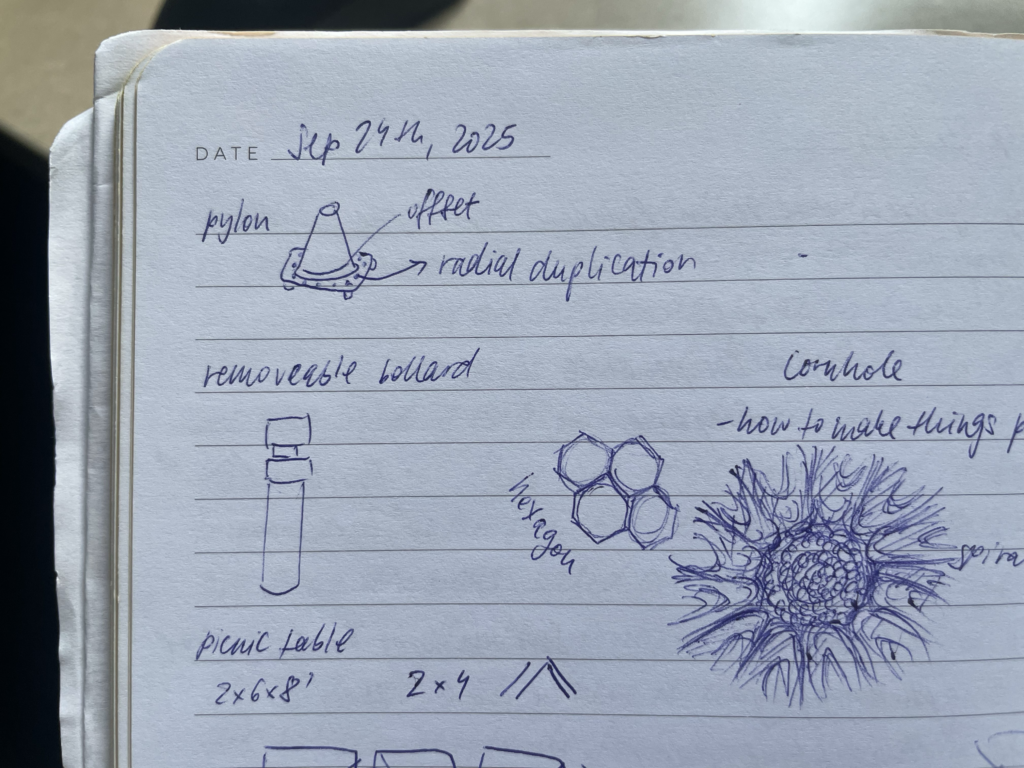 DATE Sep 24th, 2025
pylon offset
radial duplication
removeable bollard
Cornhole
-how to make things
hexagon
picnic table
2x6x8' 2x4